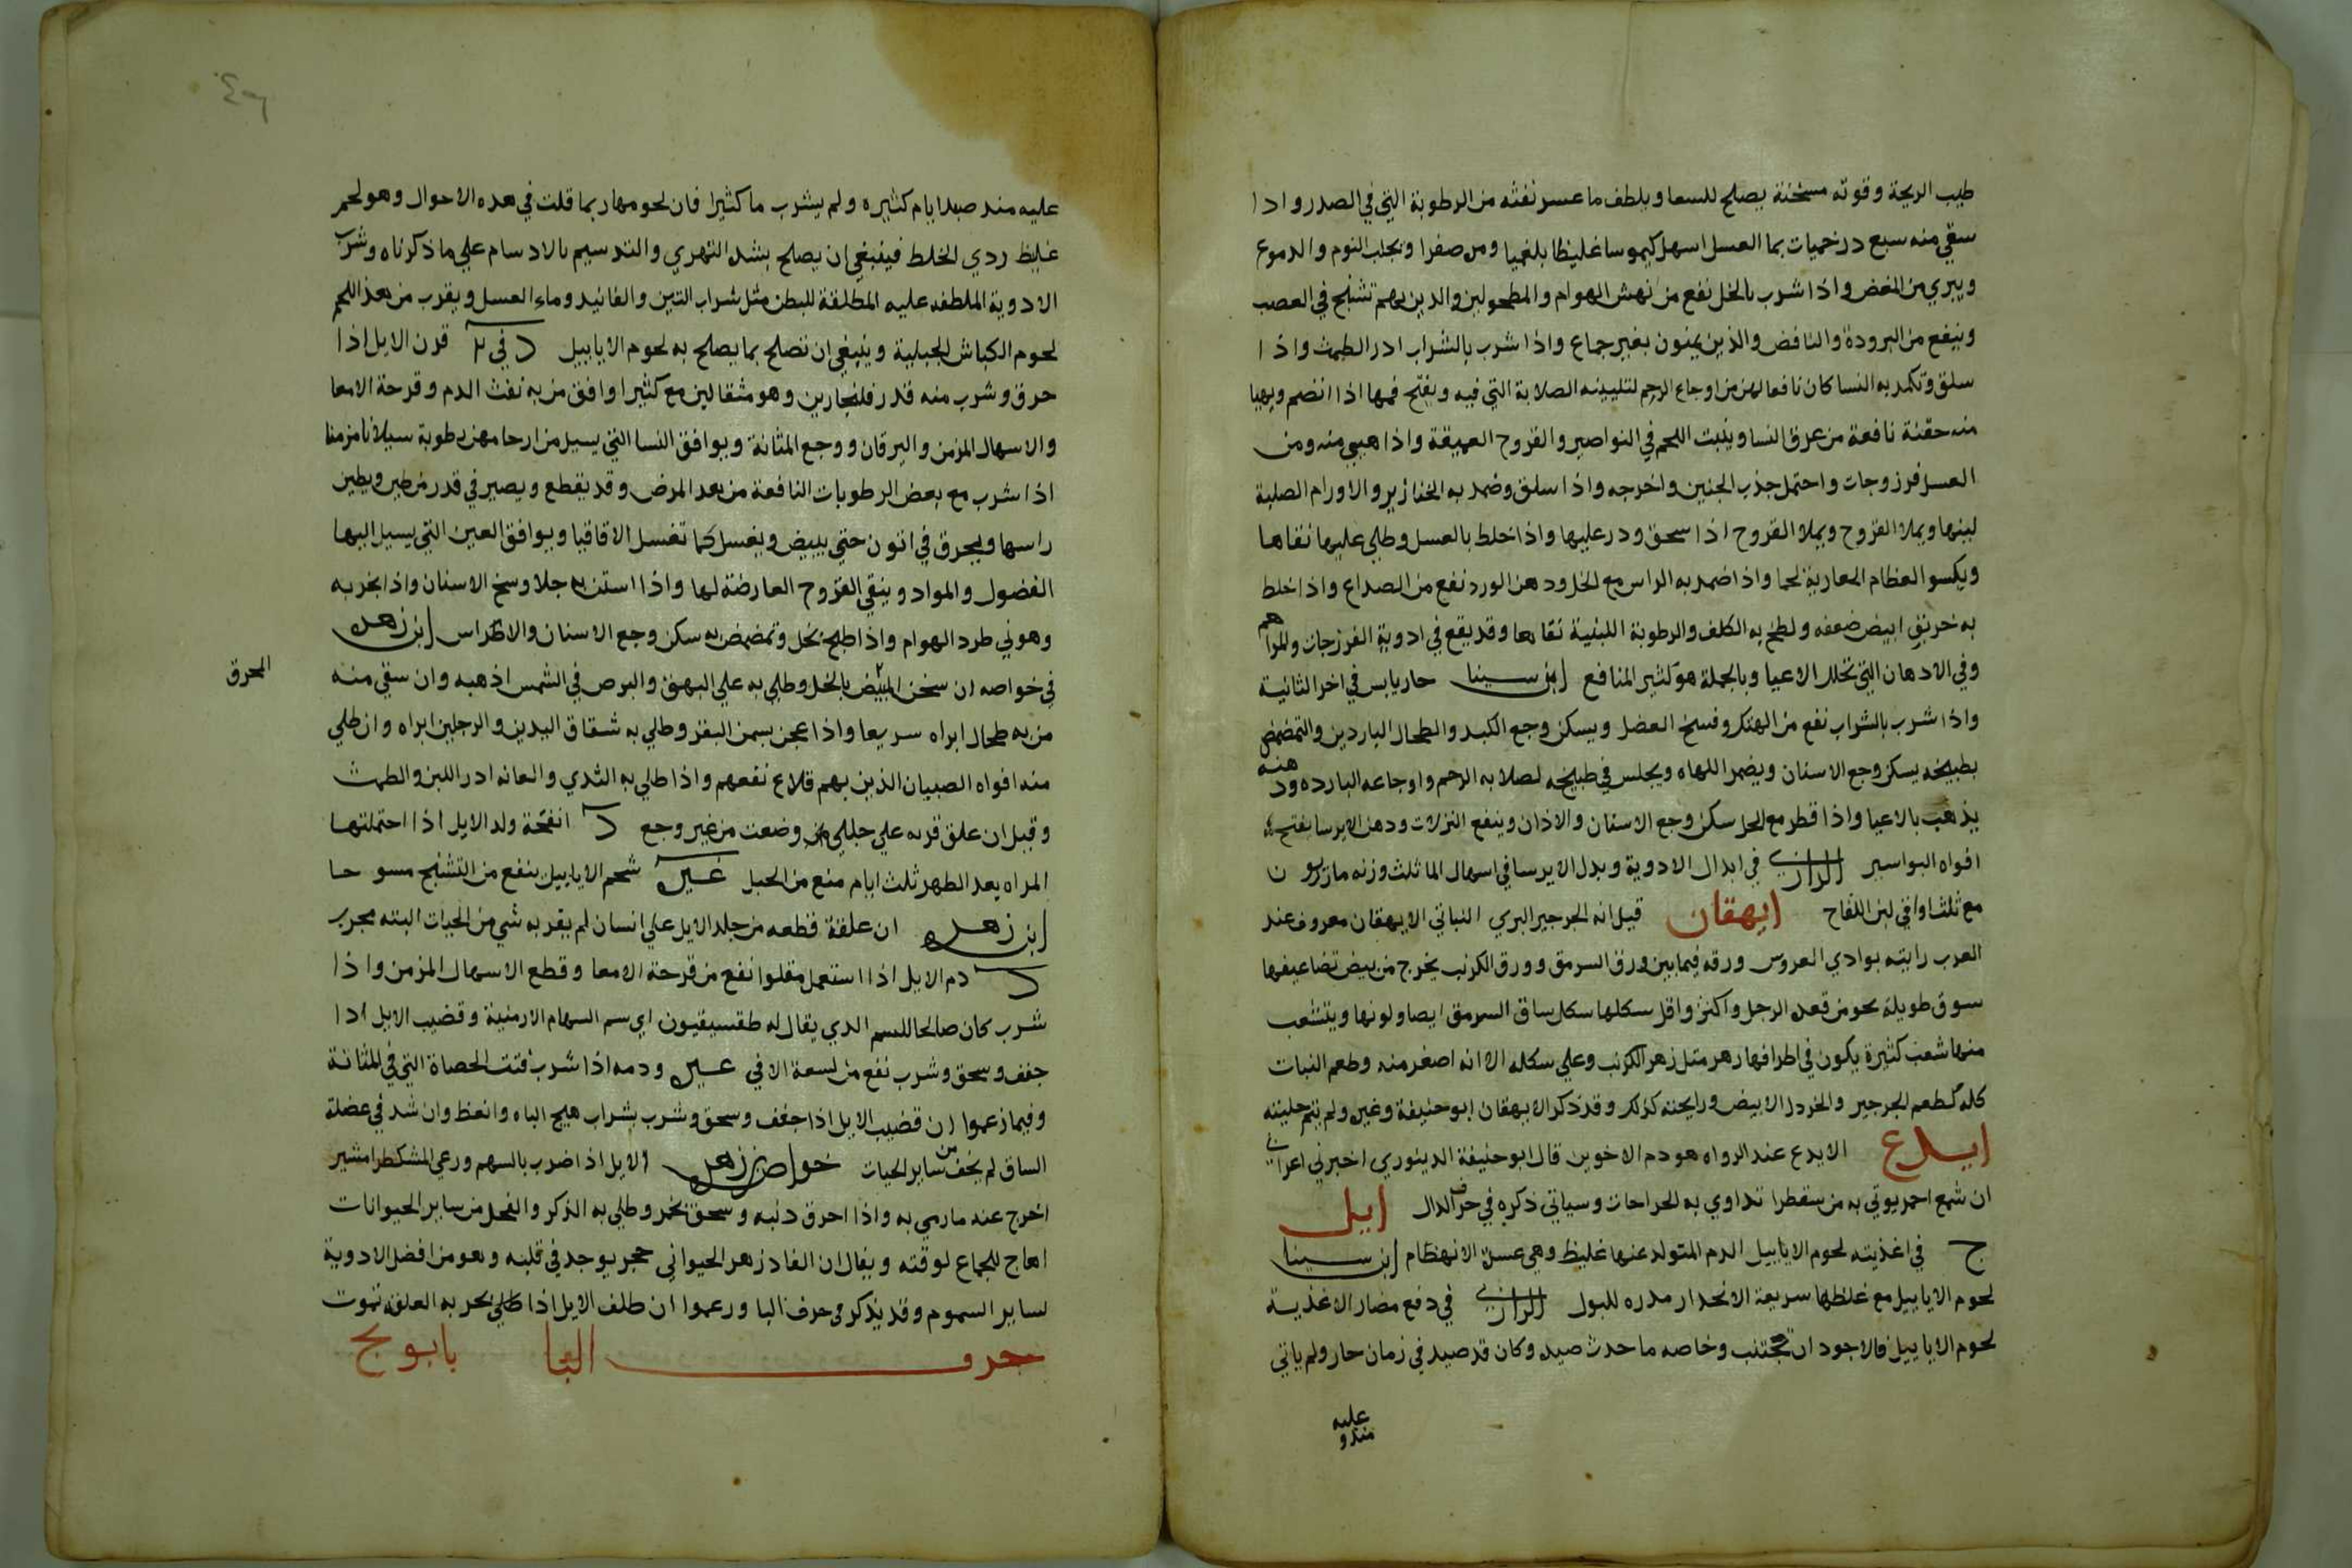 طيب الريحة وقوته مسخنة يصلح للسعا ويلطف ما عسر نفثه من الرطوبة التي في الصدر واذا
سقي منه سبع درخميات بما العسل اسهل كيموسا غليظا بلغميا ومره صفرا ويجلب النوم والدموع
ويبري من المغص واذا شرب بالخل نفع من نهش الهوام والمطحولين والدين بهم تشنج في العصب
وينفع من البرودة والنافض والذين يمنون بغير جماع واذا شرب بالشراب ادر الطمث واذا
سلق وتكمد به النسا كان نافعا لهن من اوجاع الرحم لتليينه الصلابة التي فيه ويفتح فمها اذا انضم ويهيا
منه حقنة نافعة من عرق النسا وينبت اللحم في النواصير والقروح العميقة واذا هيي منه ومن
العسل فرزوجات واحتمل جذب الجنين واخرجه واذا سلق وضمد به الخنازير والاورام الصلبة
لينها ويملا القروح ويملا القروح اذا سحق ودر عليها واذا خلط بالعسل وطلي عليها نقاها
ويكسو العظام العارية لحما واذا ضمد به الراس مع الخل ودهن الورد نفع من الصداع واذا خلط
به خربق ابيض ضعفه ولطخ به الكلف والرطوبة اللبنية نقاها وقد يقع في ادوية الفرزجات والمراهم
وفي الادهان التي تحلل الاعيا وبالجملة هو كثير المنافع ابن سينا حار يابس في اخر الثانية
واذا شرب بالشراب نفع من الهتك وفسخ العضل ويسكن وجع الكبد والطحال الباردين والتمضمض
بطبيخه يسكن وجع الاسنان ويضمر اللهاه ويجلس في طبيخه لصلابه الرحم واوجاعه البارده ودهنه
يذهب بالاعيا واذا قطر مع الخل سكن وجع الاسنان والاذان وينفع النزلات ودهن الايرسا يفتح
افواه البواسير الرازي في ابدال الادوية وبدل الايرسا في اسهال الما ثلث وزنه مازريون
مع ثلثا واقي لبن اللقاح ايهقان قيل انه الجرجير البري النباتي الايهقان معروف عند
العرب رايته بوادي العروس ورقه فيما بين ورق السرمق وورق الكرنب يخرج من بيض تضاعيفها
سوق طويلة نحو من قعدة الرجل واكثر واقل سكلها سكل ساق السرمق ايضا ولونها ويتشعب
منها شعب كثيرة يكون في اطرافها زهر مثل زهر الكرنب وعلي سكله الا انه اصغر منه وطعم النبات
كله كطعم الجرجير والخردل الابيض ورايحته كذلك وقد ذكر الايهقان ابو حنيفة وغيره ولم يتم حليته
ايدع الايدع عند الرواه هو دم الاخوين قال ابو حنيفة الدينوري اخبرني اعرابي
ان شمع احمر يوتي به من سقطرا تداوي به الجراحات وسياتي ذكره في حرف الدال ايل
ج في اغذيته لحوم الايابيل الدم المتولد عنها غليظ وهي عسرة الانهظام ابن سينا
لحوم الايابيل مع غلظها سريعة الانحدار مدره للبول الرازي في دفع مضار الاغذية
لحوم الايابيل فالاجود ان تجتنب وخاصه ما حدث صيده وكان قد صيد في زمان حار ولم ياتي
عليه
منذ و
عليه منذ صيد ايام كثيره ولم يشرب ما كثيرا فان لحومها ربما قلت في هده الاحوال وهو لحم
غليظ ردي الخلط فينبغي ان يصلح بشده التهري والتدسيم بالادسام علي ما ذكرناه وشرب
الادوية الملطفه عليه المطلقة للبطن مثل شراب التين والفانيد وماء العسل ويقرب من هذا اللحم
لحوم الكباش الجبلية وينبغي ان تصلح بما يصلح به لحوم الايابيل د في ٢ قرن الايل اذا
حرق وشرب منه قدر فلنجارين وهو مثقالين مع كثيرا وافق من به نفث الدم وقرحة الامعا
والاسهال المزمن واليرقان ووجع المثانة ويوافق النسا التي يسيل من ارحامهن رطوبة سيلانا مزمنا
اذا شرب مع بعض الرطوبات النافعة من هد المرض وقد يقطع ويصير في قدر من طين ويطين
راسها ويحرق في اتون حتي يبيض ويغسل كما تغسل الاقاقيا ويوافق العين التي يسيل اليها
الفضول والمواد وينقي القروح العارضة لها واذا استن به جلا وسخ الاسنان واذا بخر به
وهو ني طرد الهوام واذا طبخ بخل وتمضمض به سكن وجع الاسنان والاظراس ابن زهر
في خواصه ان سخن المبيض بالخل وطلي به علي البهق والبرص في الشمس اذهبه وان سقي منه
المحرق
من به طحال ابراه سريعا واذا عجن بسمن البقر وطلي به شقاق اليدين والرجلين ابراه وان طلي
منه افواه الصبيان الذين بهم قلاع نفعهم واذا طلي به الثدي والعانه ادر اللبن والطمث
وقيل ان علق قرنه علي حبلي وضعت من غير وجع د انفحة ولد الايل اذا احتملتها
المراه بعد الطهر ثلث ايام منع من الحبل غيره شحم الايابيل ينفع من التشنج مسوحا
ابن زهر ان علقة قطعه من جلد الايل علي انسان لم يقربه شي من الحيات البته مجرب
د دم الايل اذا استعمل مقلوا نفع من قرحة الامعا وقطع الاسهال المزمن واذا
شرب كان صالحا للسم الدي يقال له طقسيقيون اي سم السهام الارمنية وقضيب الايل اذا
جفف وسحق وشرب نفع من لسعة الافي غيره ودمه اذا شرب فتت الحصاة التي في المثانة
وفيما زعموا ان قضيب الايل اذا جفف وسحق وشرب بشراب هيج الباه وانعظ وان شد في عضلة
الساق لم يخف من ساير الحيات خواص بن زهر الايل اذا ضرب بالسهم ورعي المشكطرا مشير
اخرج عنه ما رمي به واذا احرق دنبه وسحق بخمر وطلي به الذكر والفحل من ساير الحيوانات
اهاج للجماع لوقته ويقال ان الفاد زهر الحيواني حجر يوجد في قلبه وهو من افضل الادوية
لساير السموم وقد يذكر في حرف البا وزعموا ان ظلف الايل اذا طلي بخر به العلق تموت
حرف البا بابونج